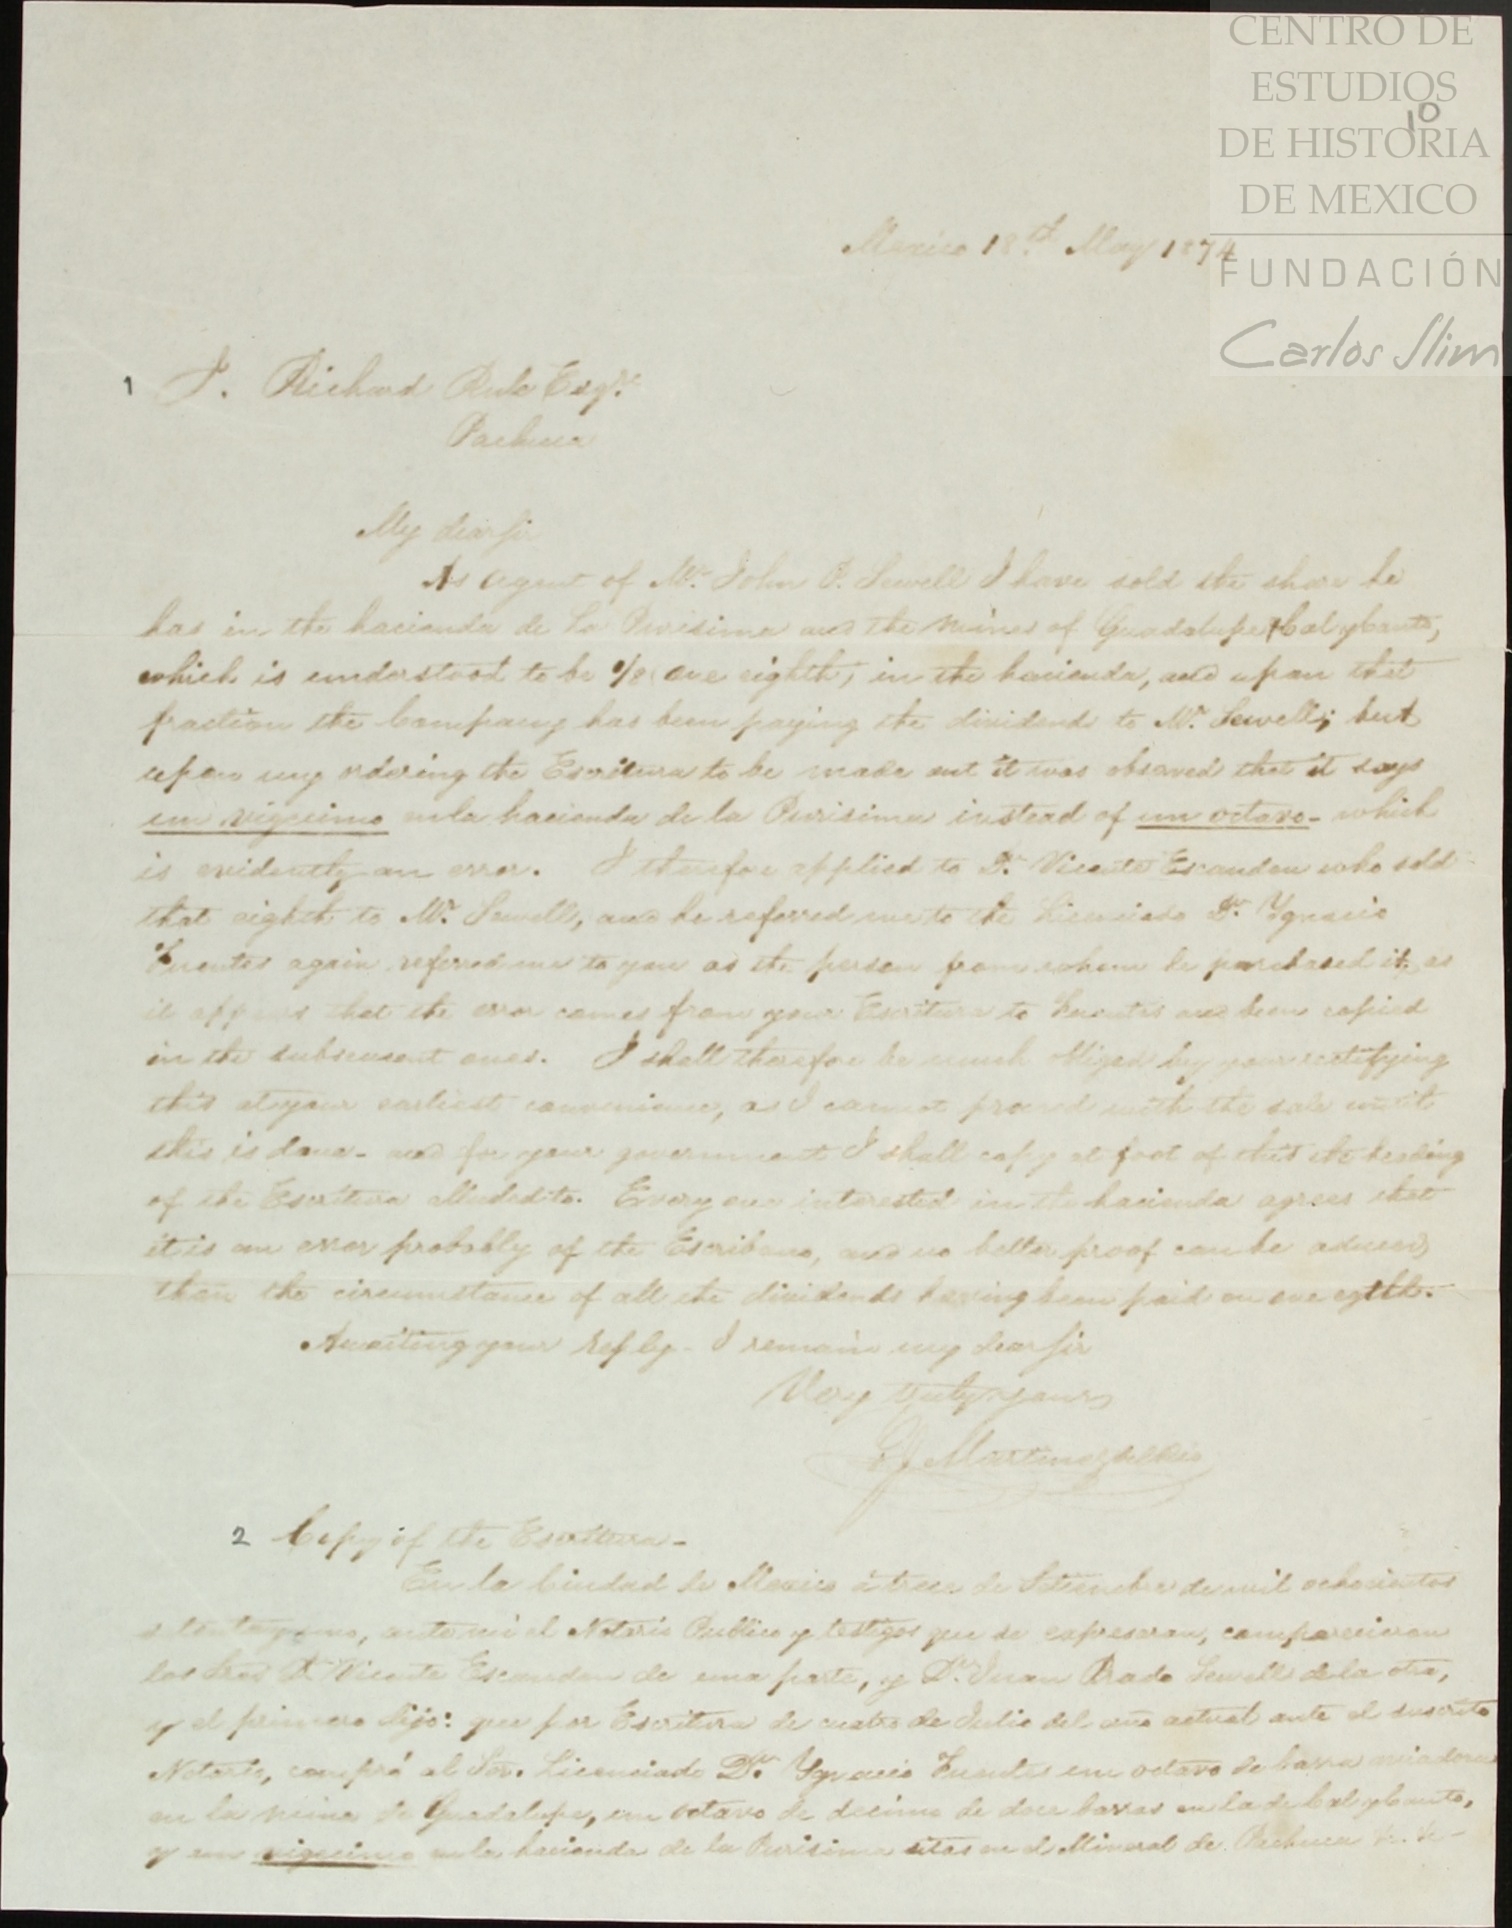 CENTRO DE
ESTUDIOS
DE HISTORIA
DE MEXICO
FUNDACIÓN
Carlos Slim
10
Mexico 18th May 1874
1 F. Richard Rule Esqr.
Pachuca
My dear Sir
As agent of Mr. John P. Sewell I have sold the share he
has in the hacienda de La Purisima and the mines of Guadalupe & Cal y Canto,
which is understood to be 1/8 (one eighth) in the hacienda, and upon that
fraction the Company has been paying the dividend to Mr. Sewell; but
upon my ordering the Escritura to be made out it was observed that it says
un vigecimo en la hacienda de la Purisima instead of un octavo - which
is evidently an error. I therefore applied to Dn. Vicente Escandon who sold
that eighth to Mr. Sewell, and he referred me to the Licenciado Dn. Ygnacio
Fuentes again referred me to you as the person from whom he purchased it, as
it appears that the error comes from your Escritura to Fuentes and been copied
in the subsecuent ones. I shall therefore be much obliged by your rectifying
this at your earliest convenience, as I cannot proceed with the sale until
this is done - and for your government I shall copy at foot of this the heading
of the Escritura alluded to. Every one interested in the hacienda agrees that
it is an error probably of the Escribano, and no better proof can be aduced
than the circumstance of all the dividends having been paid on one eghth.
Awaiting your reply - I remain my dear Sir
Very truly yours
Martinez del Rio
2 Copy of the Escritura -
En la Ciudad de Mexico a trece de Setiembre de mil ochocientos
setenta y uno, ante mi el Notario Publico y testigos que se expresaran, comparecieron
los Sres Dn Vicente Escandon de una parte, y Dn. Juan Prado Sewell de la otra,
y el primero dijo: que por Escritura de cuatro de Julio del año actual ante el suscrito
Notario, compró al Sor. Licenciado Dn. Ygnacio Fuentes un octavo de barra aviadora
en la mina de Guadalupe, un octavo de decimo de doce barras en la de Cal y Canto,
y un vigecimo en la hacienda de la Purisima sitas en el Mineral de Pachuca &c. &c -